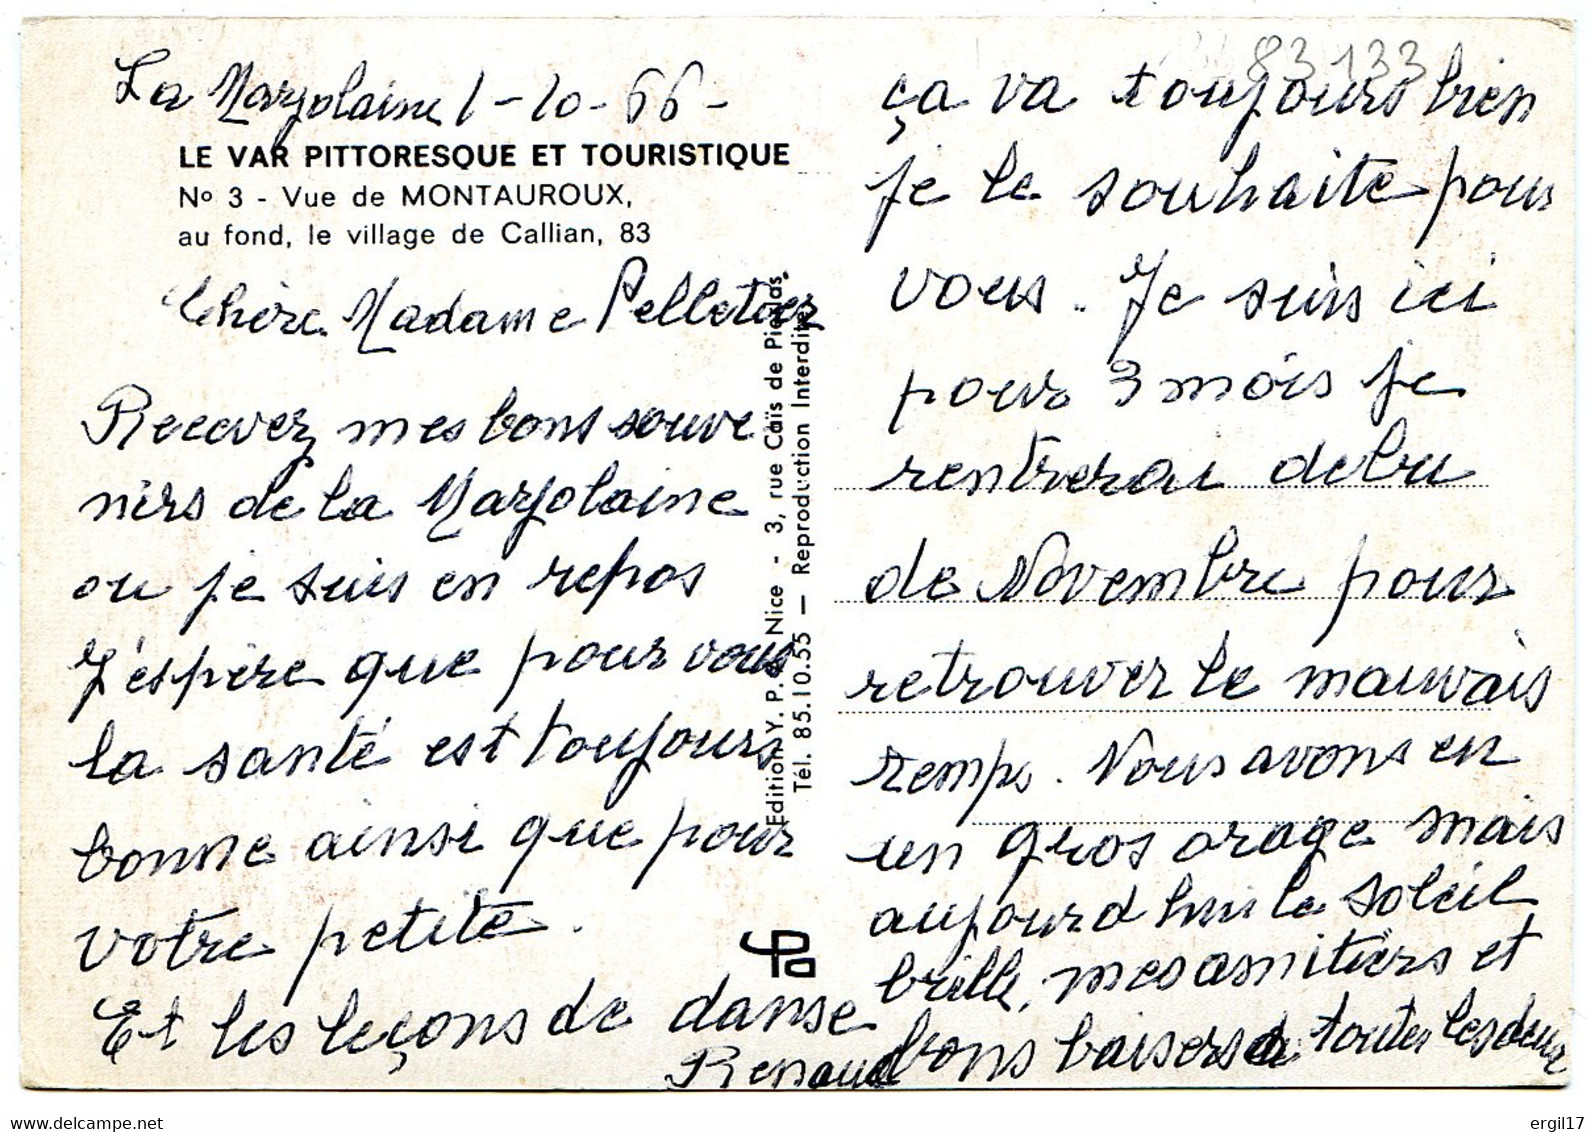 La Marjolaine 1-10-66-
LE VAR PITTORESQUE ET TOURISTIQUE
Nº 3 - Vue de MONTAUROUX,
au fond, le village de Callian, 83
Chère Madame Pelletier
Recevez mes bons souve
nirs de la Marjolaine
ou je suis en repos
J'espère que pour vous
la santé est toujours
bonne ainsi que pour
votre petite.
Et les leçons de danse
Renaud
Edition Y. P. Nice - 3, rue Caïs de Pierlas.
Tél. 85.10.55 — Reproduction Interdite
83133
ça va toujours bien
je le souhaite pour
vous. Je suis ici
pour 3 mois je
rentrerai debu
de Novembre pour
retrouver le mauvais
temps. Nous avons eu
un gros orage mais
aujourd hui le soleil
brille, mes amitiers et
bons baisers a toutes les deux
ergil17